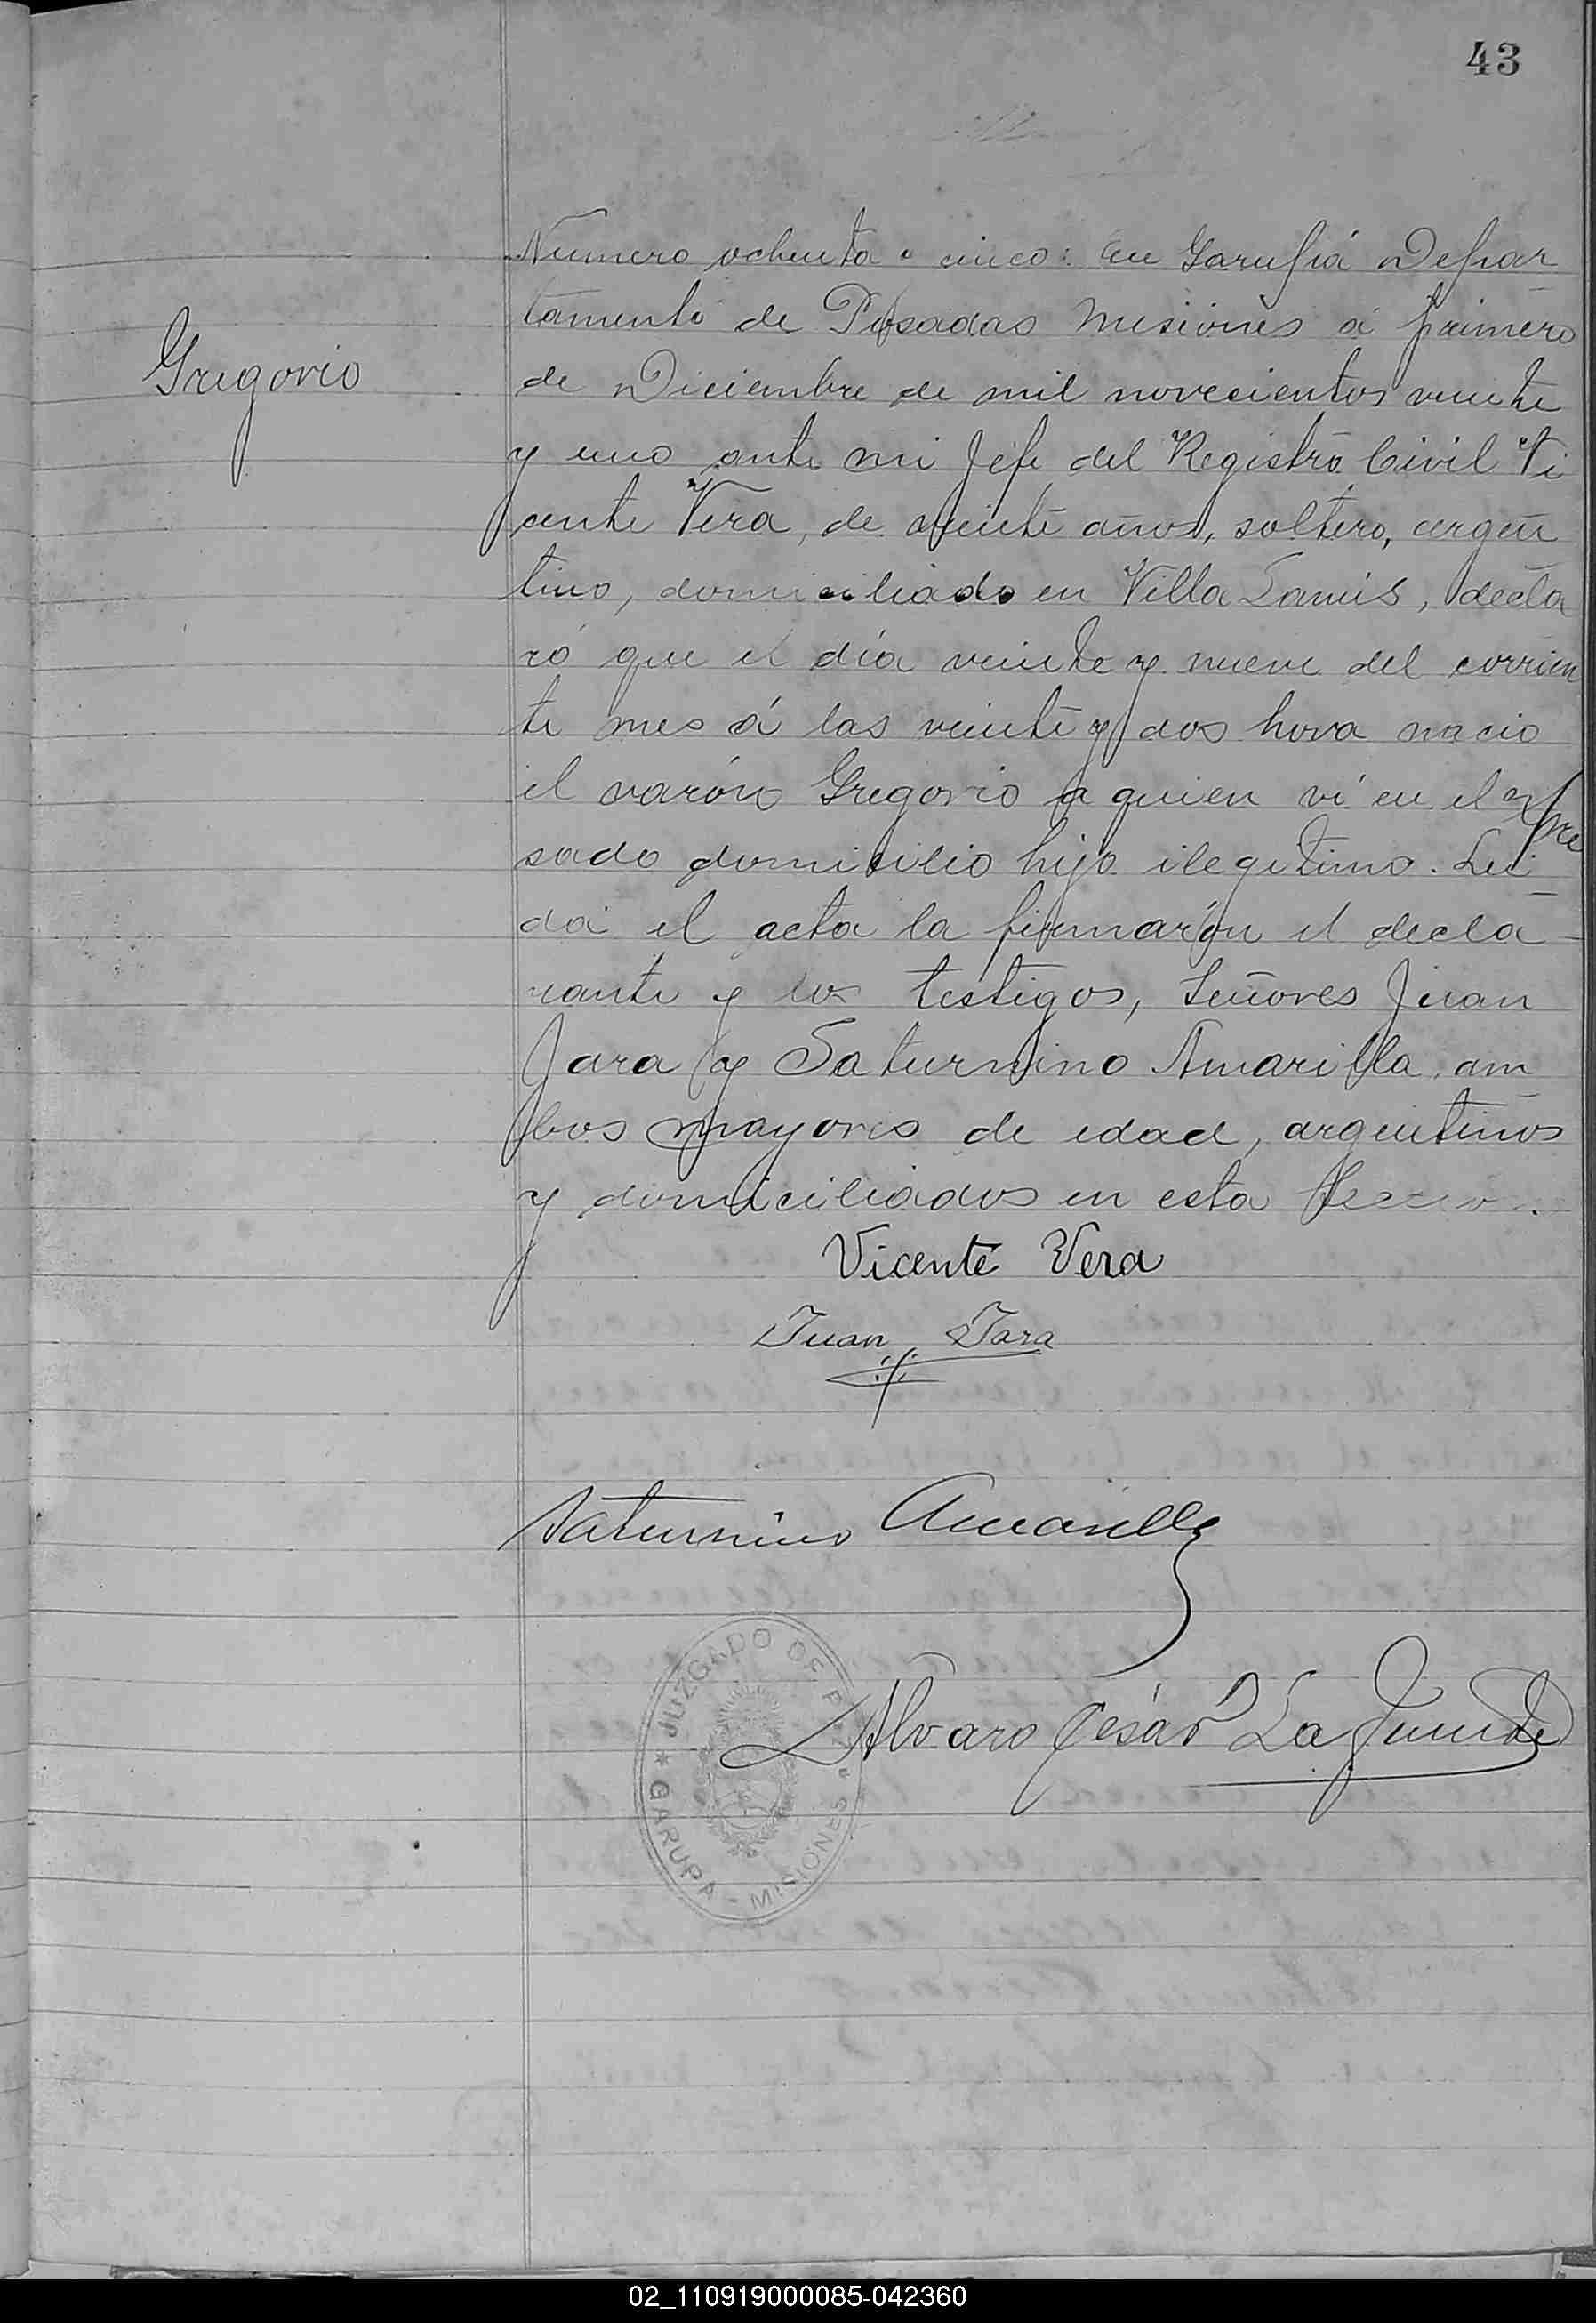 43
Gregorio
Número ochenta y cinco: En Garupá Depar
tamento de Posadas Misiones á primero
de Diciembre de mil novecientos veinte
y uno ante mi Jefe del Registro Civil Vi
cente Vera, de veinte años, soltero, argen
tino, domiciliado en Villa Lanús, decla
ró que el día veinte y nueve del corrien
te mes á las veinte y dos hora nacio
el varón Gregorio a quien ví en el expre
sado domicilio hijo ilegitimo. Lei
da el acta la firmarón el decla
rante y los testigos, Señores Juan
Jara y Saturnino Amarilla, am
bos mayores de edad, argentinos
y domiciliados en esta
Vicente Vera
Juan Jara
Saturnino Amarilla
Alvaro César La Fuente
JUZGADO DE PAZ
GARUPA - MISIONES
02_110919000085-042360